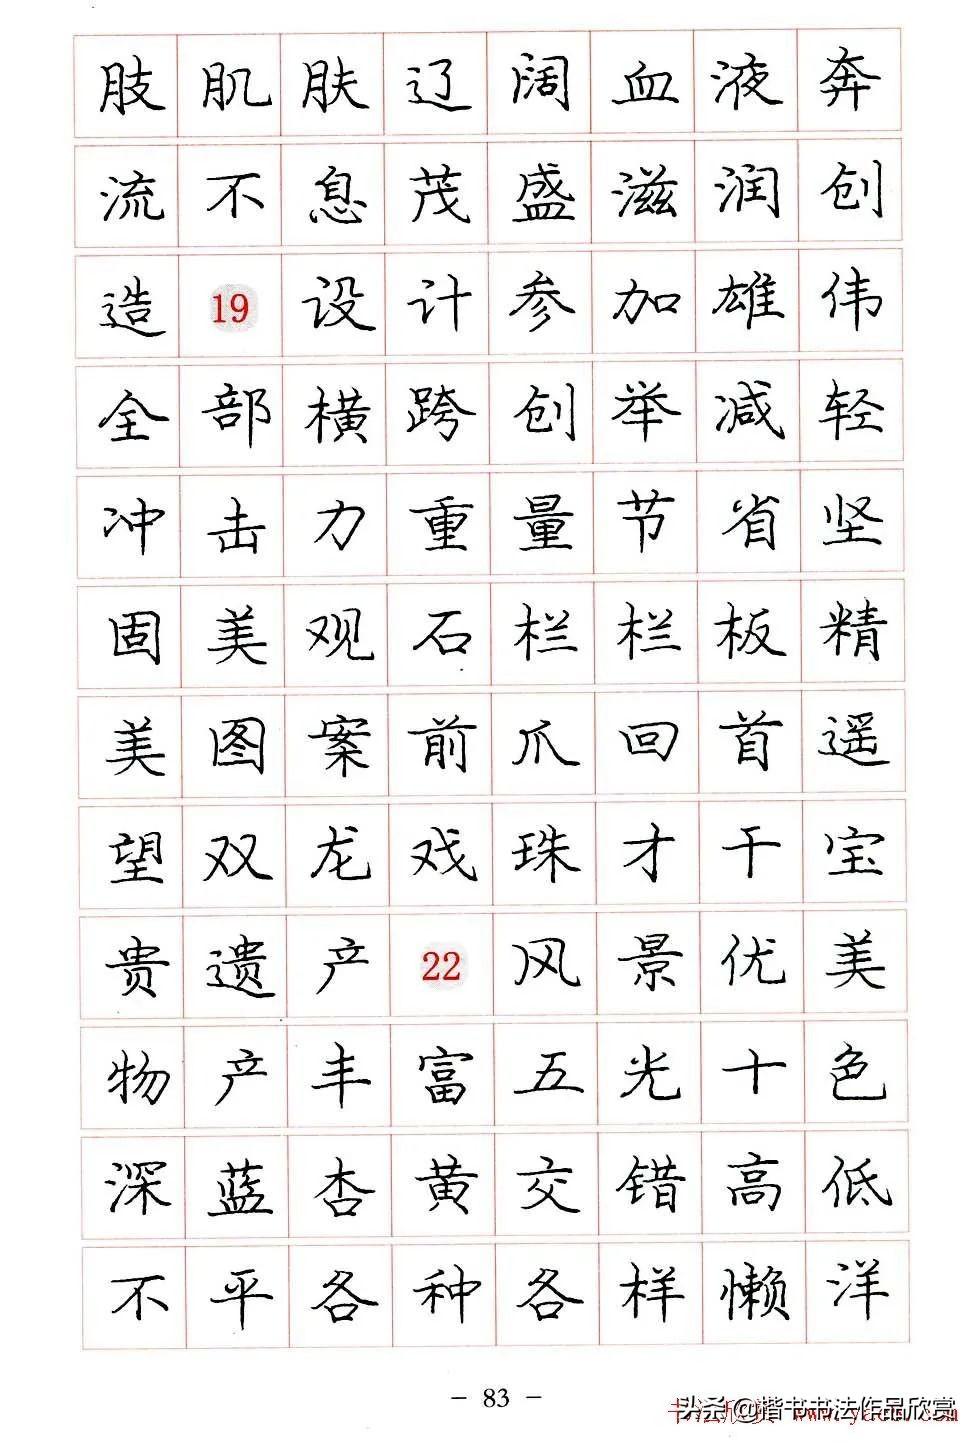 肢肌肤辽阔血液奔
流不息茂盛滋润创
造19设计参加雄伟
全部横跨创举减轻
冲击力重量节省坚
固美观石栏栏板精
美图案前爪回首遥
望双龙戏珠才干宝
贵遗产22风景优美
物产丰富五光十色
深蓝杏黄交错高低
不平各种各样懒洋
- 83 -
头条@楷书书法作品欣赏